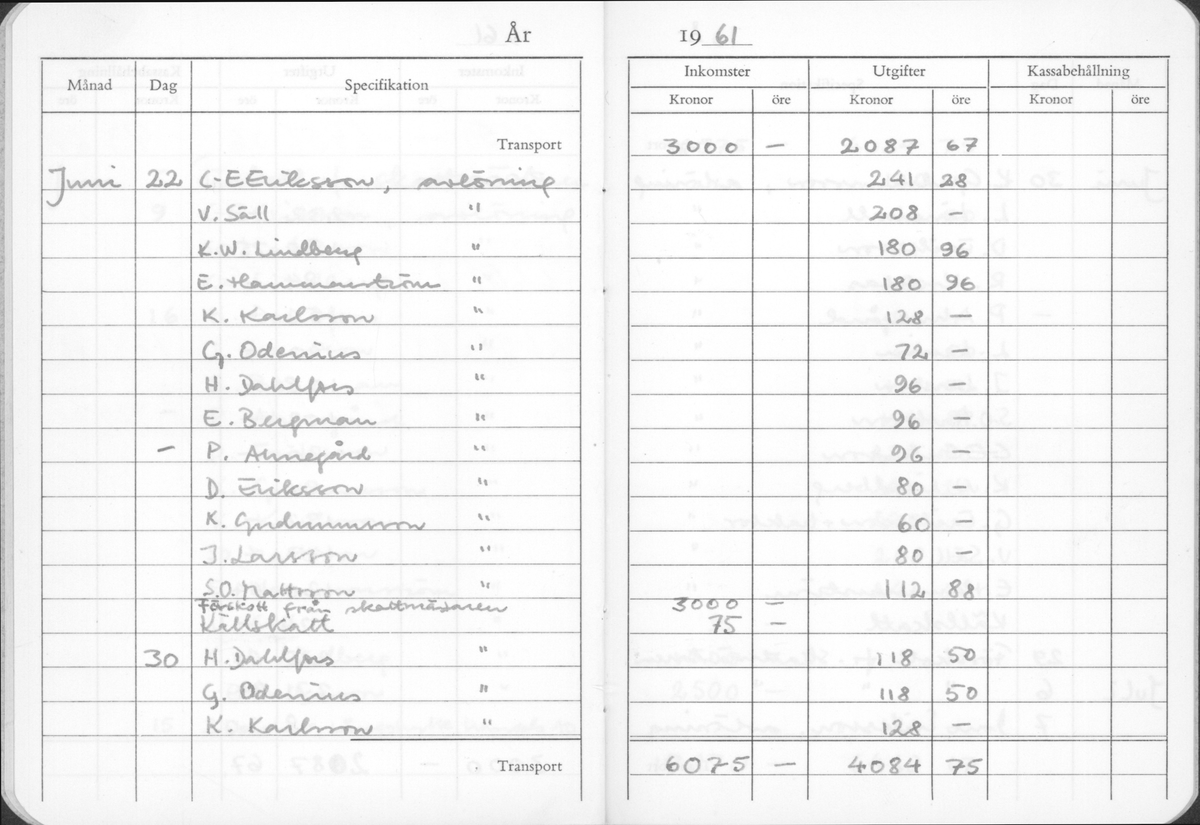 År 1961
Inkomster Utgifter Kassabehållning
Månad Dag Specifikation Kronor öre Kronor öre Kronor öre
Transport 3000 — 2087 67
Juni 22 C-E Eriksson, avlöning 241 28
V. Säll " 208 —
K.W. Lindberg " 180 96
E. Hammarström " 180 96
K. Karlsson " 128 —
G. Odenius " 72 —
H. Dahlfors " 96 —
E. Bergman " 96 —
— P. Ahnegård " 96 —
D. Eriksson " 80 —
K. Gudmunsson " 60 —
J. Larsson " 80 —
S.O. Mattsson " 112 88
Förskott från skattmästaren 3000 —
Källskatt 75 —
30 H. Dahlfors " 118 50
G. Odenius " 118 50
K. Karlsson " 128 —
Transport 6075 — 4084 75